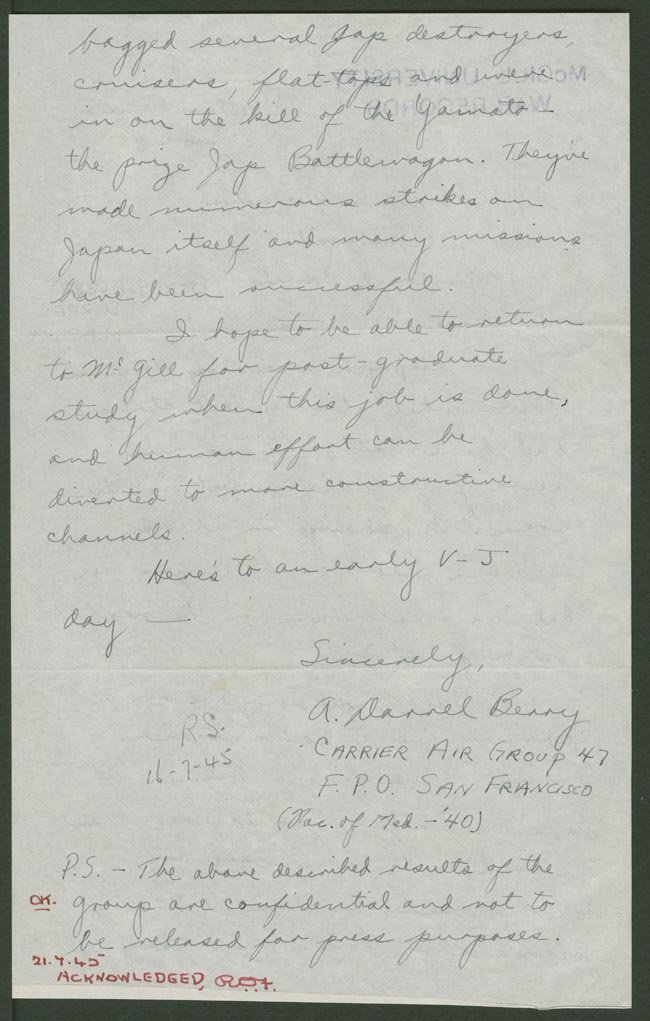 bagged several Jap destroyers,
cruisers, flat-tops and were
in on the kill of the Yamato -
the prize Jap Battlewagon. They've
made numerous strikes on
Japan itself and many missions
have been successful.
I hope to be able to return
to McGill for post-graduate
study when this job is done,
and human effort can be
diverted to more constructive
channels.
Here's to an early V-J
day —
Sincerely,
A. Darrel Berry
CARRIER AIR GROUP 47
F.P.O. SAN FRANCISCO
(Fac. of Med. - '40)
R.S.
16-7-45
P.S. - The above described results of the
group are confidential and not to
be released for press purposes.
OK.
21.7.45
ACKNOWLEDGED,
McGILL UNIVERSITY
WAR RECORDS